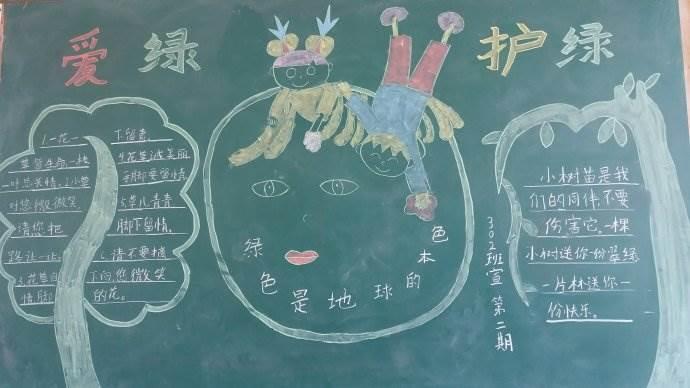 爱绿
护绿
1.一花一
草皆生命,一枝
一叶总关情。2.小草
对您微微笑
请您把
路让一让。
下留青。
4.花草诚美丽
5.草儿青青
脚下留情。
6.请不要摘
下向您微笑
的花。
绿色是地球的本色
302班宣 第二期
小树苗是我
们的同伴不要
伤害它。一棵
小树送你一份翠绿
一片林送你一
份快乐。